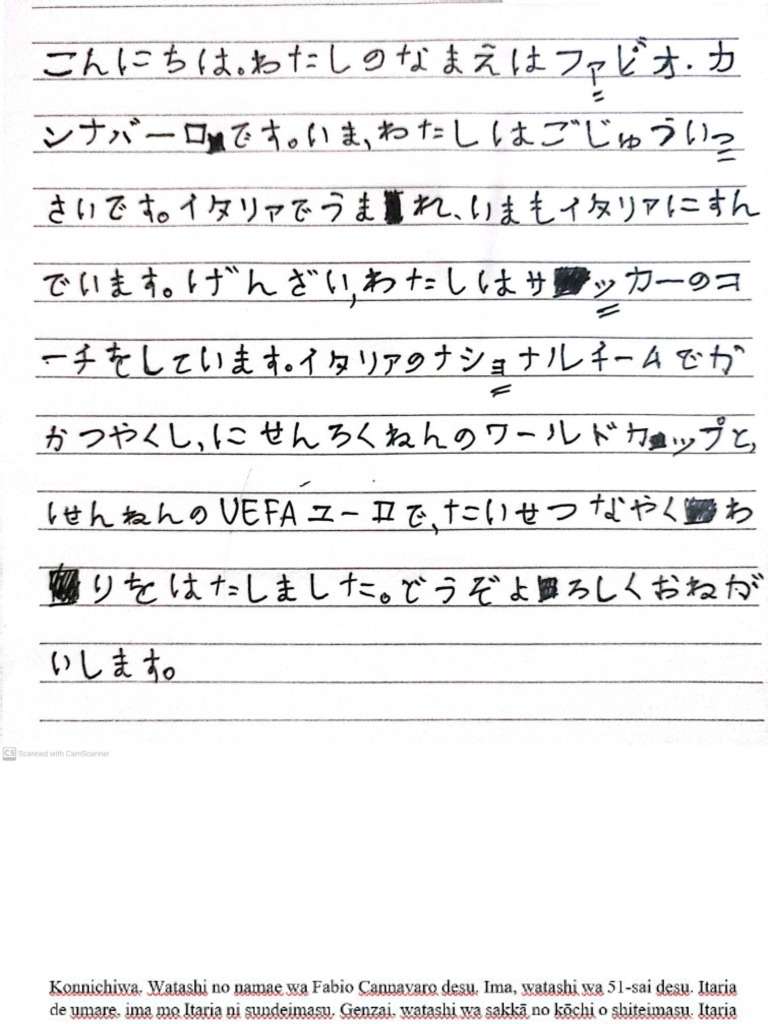 こんにちは。わたしのなまえはファビオ・カ
ンナバーロです。いま,わたしはごじゅういっ
さいです。イタリァでうまれ、いまもイタリァにすん
でいます。げんざい,わたしはサッカーのコ
ーチをしています。イタリァのナショナルチームでか
かつやくし,にせんろくねんのワールドカップと,
にせんねんのUEFAユーロで,たいせつなやくわ
りをはたしました。どうぞよろしくおねが
いします。
CS Scanned with CamScanner
Konnichiwa. Watashi no namae wa Fabio Cannavaro desu. Ima, watashi wa 51-sai desu. Itaria
de umare, ima mo Itaria ni sundeimasu. Genzai, watashi wa sakkā no kōchi o shiteimasu. Itaria